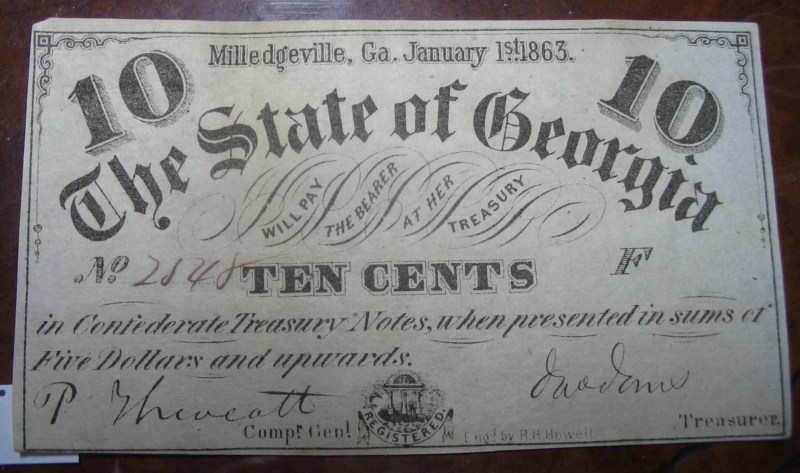 Milledgeville, Ga. January 1st 1863.
10 10
The State of Georgia
WILL PAY THE BEARER AT HER TREASURY
No 2848 TEN CENTS F
in Confederate Treasury Notes, when presented in sums of
Five Dollars and upwards.
P Thweatt
Compr. Genl.
REGISTERED.
Engd by R.H. Howell
Treasurer.